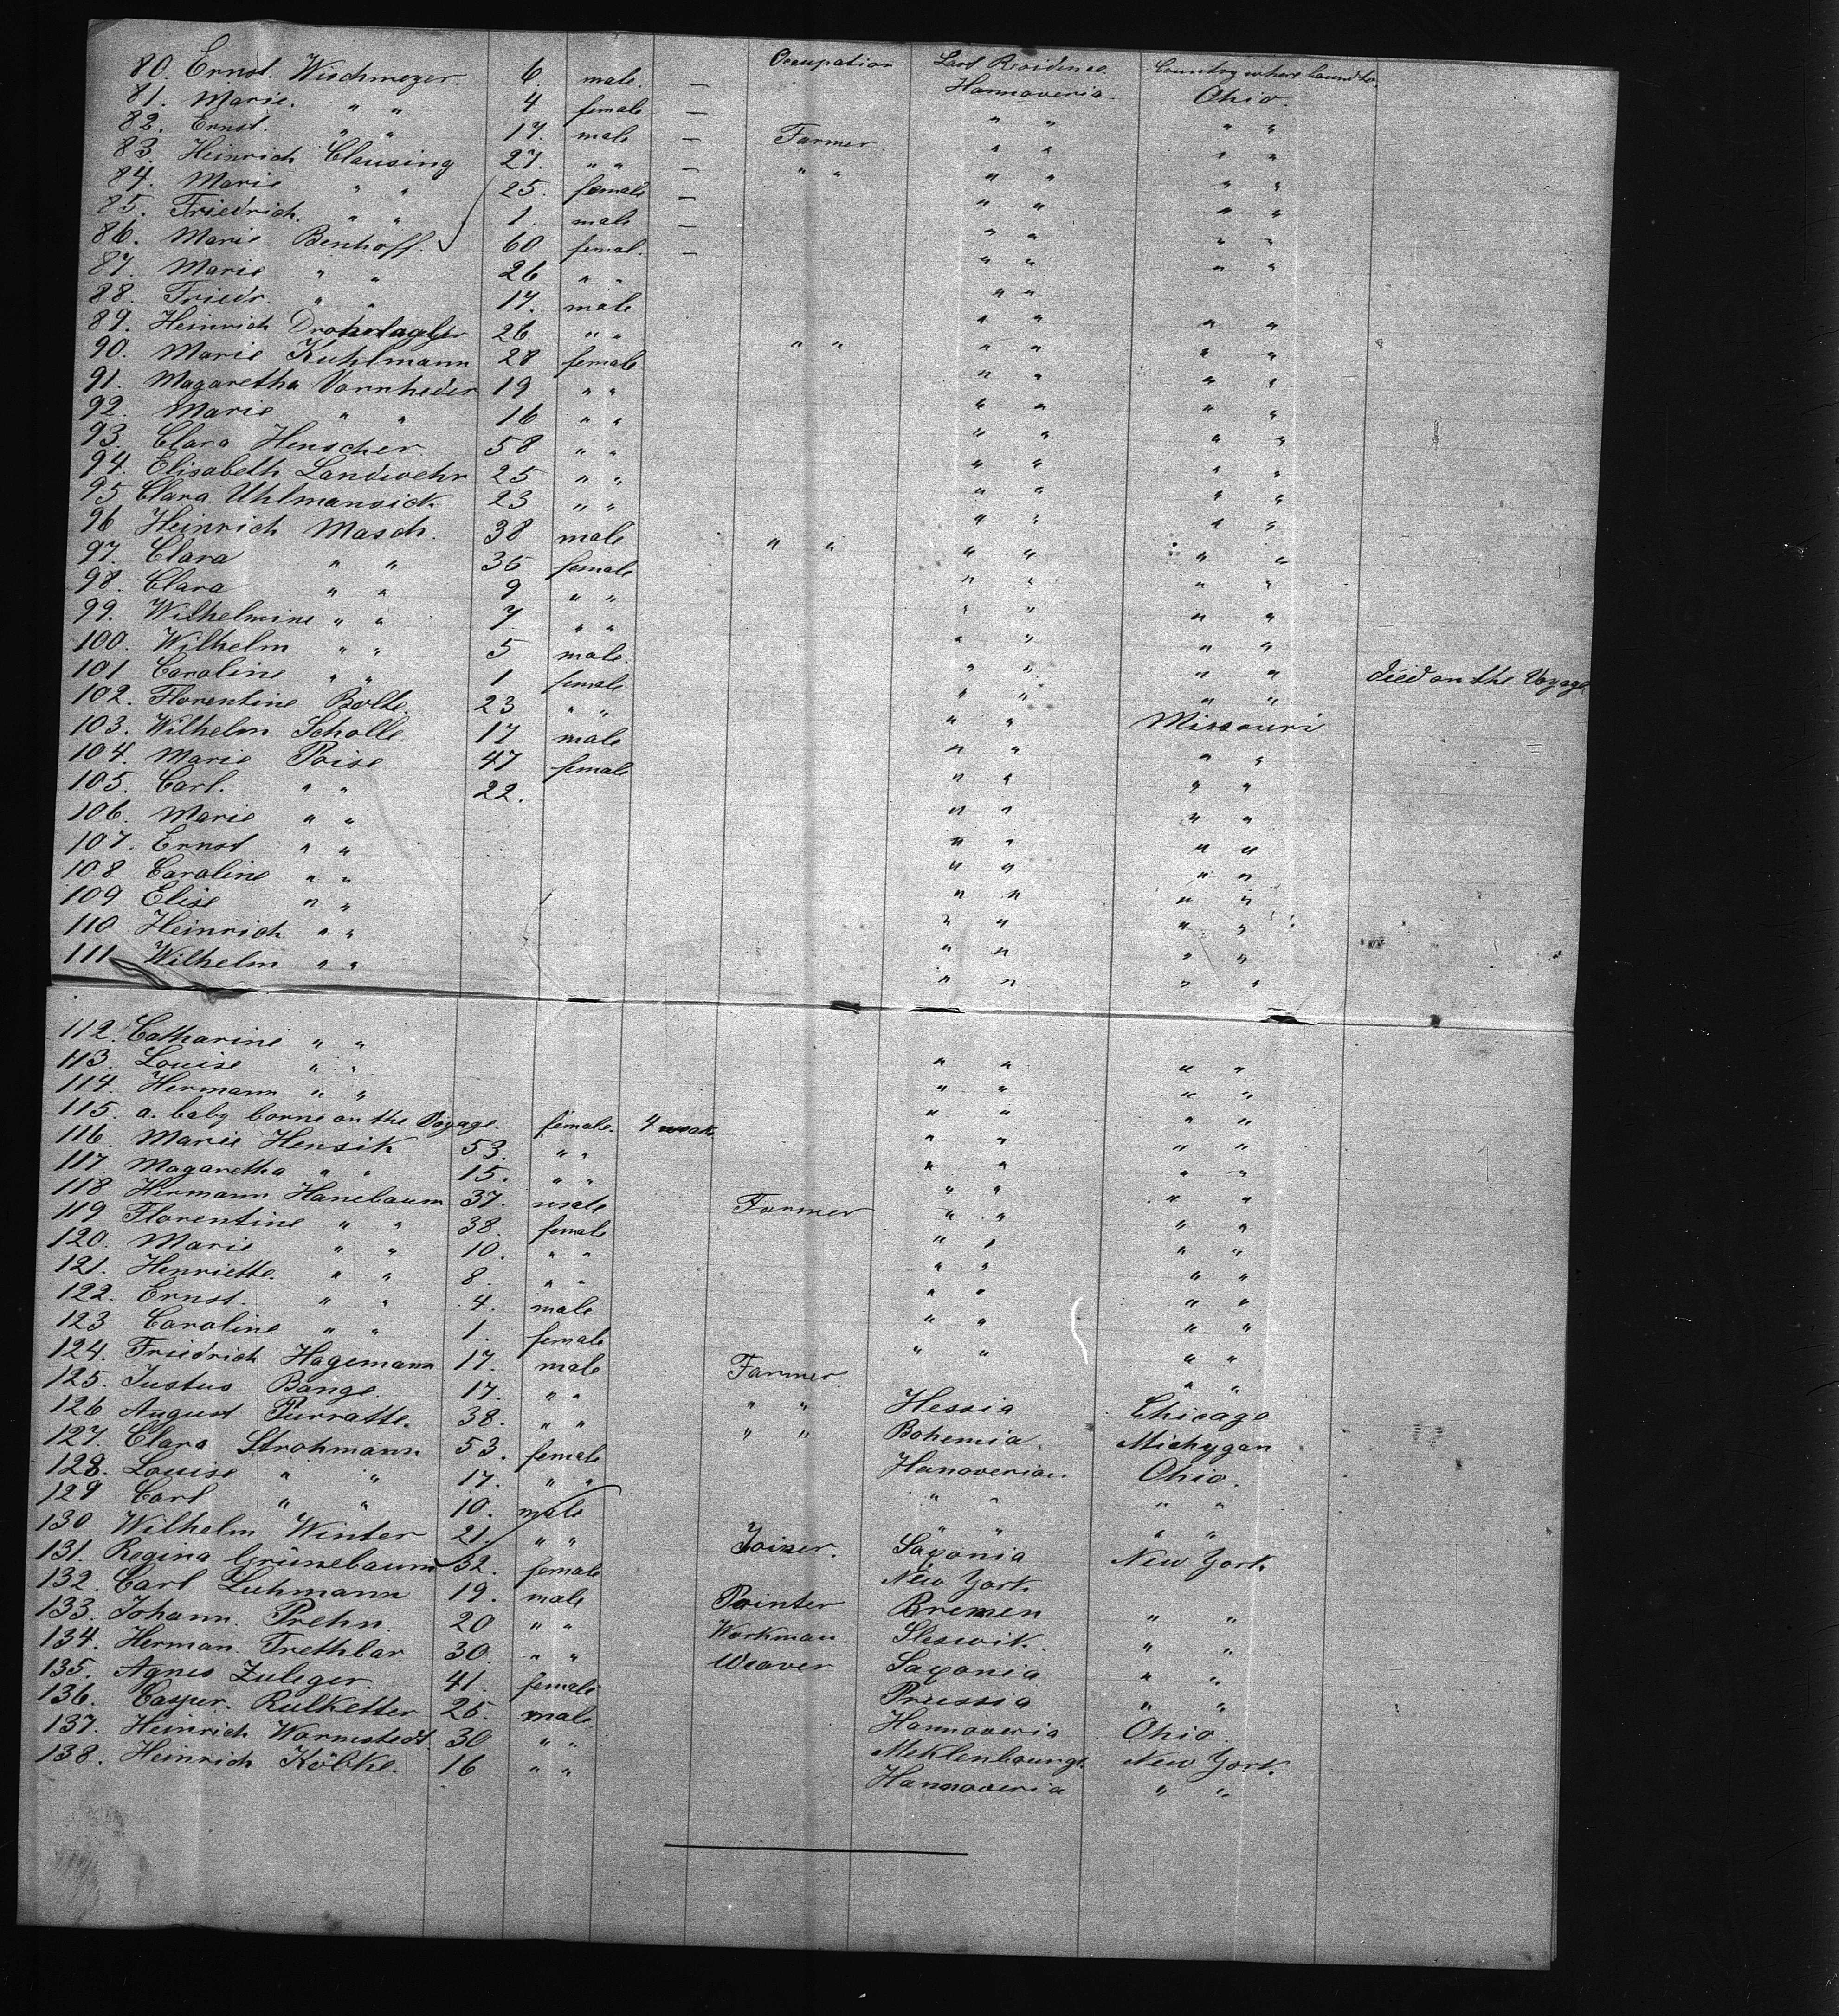 Occupation Last Residence. Country where bound to.
80. Ernst. Wischmeyer. 6 male. — Hannoveria. Ohio.
81. Marie. " " 4 female — " " " "
82. Ernst. " " 17. male — Farmer. " " " "
83. Heinrich Clausing 27. " " — " " " " " "
84. Marie " " 25. female — " " " "
85. Friedrich. " " 1. male — " " " "
86. Marie Benhoff. 60 femal. — " " " "
87. Marie " " 26 " " " "
88. Friedr. " " 17. male " " " "
89. Heinrich 26 " " " " " " " "
90. Marie Kuhlmann 28 female " " " "
91. Magaretha Vornheder 19 " " " " " "
92. Marie " " 16 " " " " " "
93. Clara Henscher. 58 " " " " " "
94. Elisabeth Landwehr 25 " " " " " "
95 Clara Uhlmansick 23 " " " " " "
96 Heinrich Masch. 38 male " " " " " "
97. Clara " " 36 female " " " "
98. Clara " " 9 " " " " " "
99. Wilhelmine " " 7 " " " " " "
100. Wilhelm " " 5 male. " " " "
101 Caroline " " 1 female " " " " died on the Voyage
102. Florentine Bolte. 23 " " " " Missouri
103. Wilhelm Scholle. 17 male " " " "
104. Marie Poise 47 female " " " "
105. Carl. " " 22. " " " "
106. Marie " " " " " "
107. Ernst " " " " " "
108 Caroline " " " " " "
109 Elise " " " " " "
110 Heinrich " " " " " "
111. Wilhelm " " " " " "
112. Catharine " " " " " "
113. Louise " " " " " "
114. Hermann " " " " " "
115. a. baby borne on the Voyage. female. 4 week " " " "
116. Marie Hensik 53. " " " " " "
117. Magaretha " " 15. " " " " " "
118 Hermann Hanebaum 37. male Farmer " " " "
119 Florentine " " 38. female " " " "
120. Marie " " 10. " " " " " "
121. Henriette. " " 8. " " " " " "
122. Ernst. " " 4. male " " " "
123 Caroline " " 1. female " " " "
124. Friedrich Hagemann 17. male Farmer. " " " "
125. Justus Bange. 17. " " " " Hessia Chicago
126 August Purratte. 38. " " " " Bohemia. Michygan
127. Clara Strohmann 53. female Hanoverian. Ohio.
128. Louise " " 17. " " " " " "
129 Carl " " 10. male " " " "
130 Wilhelm Winter 21. " " Joiner. Saxonia New York.
131. Regina Grünebaum 32. female New York.
132. Carl Luhmann 19. male Painter Bremen " "
133. Johann. Prehn. 20 " " Workman. Sleswik. " "
134. Herman. Trethbar. 30. " " Weaver Saxonia " "
135. Agnes Zuleger. 41. female Prussia " "
136. Casper. Rulketter 25. male Hannoveria Ohio.
137. Heinrich Warmstedt. 30 " " Meklenbourg. New York.
138. Heinrich Kölke. 16 " " Hannoveria " "